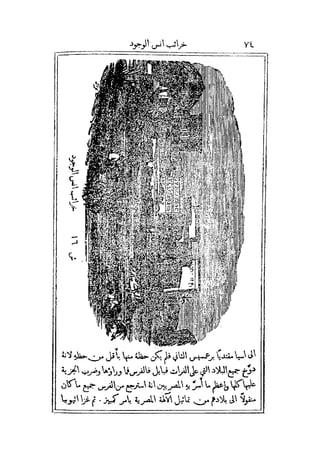 ٧٤
خرائب انس الوجود
خرائب انس الوجود
ش ١٦
الى اسيا مقتديًا برعمسيس الثاني فلم يكن حظهُ منها بأقل من حظهِ لانهُ
دوَّخ جميع البلاد التي على الفرات فبابل فالفرس فما وراءها وضرب الجزية
عليها كلها واعظم ما أَسرَّ بهِ المصريين انهُ استرجع من الفرس جميع ما كان
منقولًا الى بلادهم من تماثيل الآلهة المصرية بامر كمبيز . ثم غزا اثيوبيا